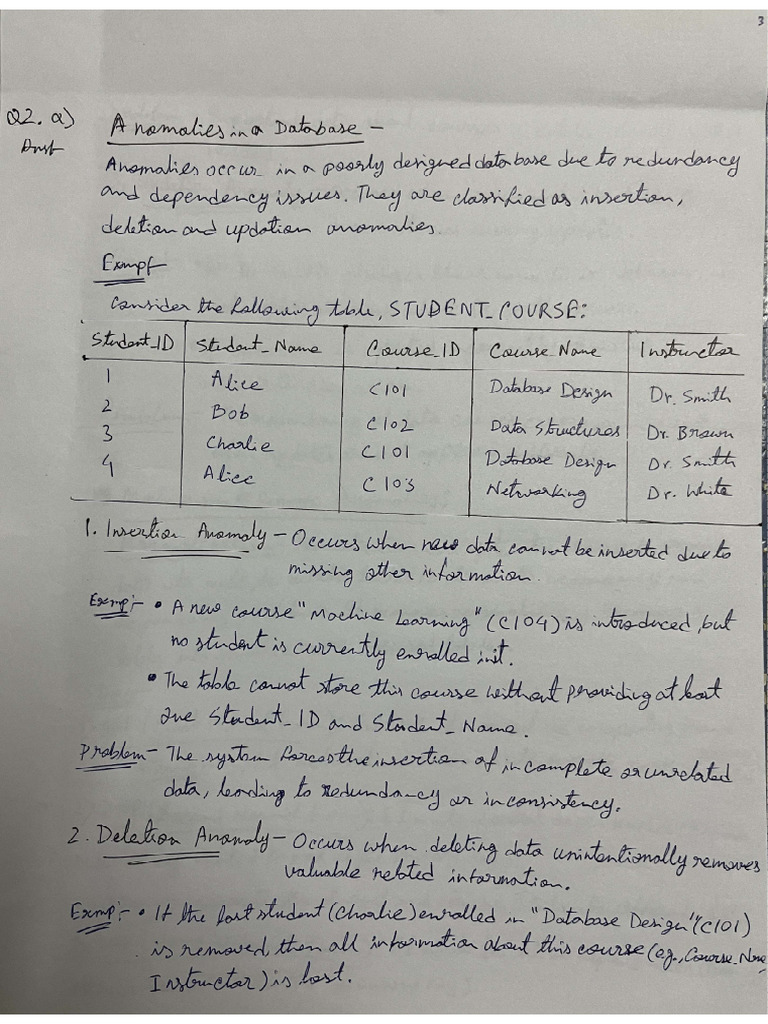 3
Q2. a) Anomalies in a Database -
Ans
Anomalies occur in a poorly designed database due to redundancy
and dependency issues. They are classified as insertion,
deletion and updation anomalies.
Exmpl
Consider the following table, STUDENT_COURSE:
Student_ID Student_Name Course_ID Course Name Instructor
1 Alice C101 Database Design Dr. Smith
2 Bob C102 Data Structures Dr. Brown
3 Charlie C101 Database Design Dr. Smith
4 Alice C103 Networking Dr. White
1. Insertion Anomaly - Occurs when new data cannot be inserted due to
missing other information.
Exmp:- • A new course "Machine Learning" (C104) is introduced, but
no student is currently enrolled in it.
• The table cannot store this course without providing at least
one Student_ID and Student_Name.
Problem - The system forces the insertion of incomplete or unrelated
data, leading to redundancy or inconsistency.
2. Deletion Anomaly - Occurs when deleting data unintentionally removes
valuable related information.
Exmp:- • If the last student (Charlie) enrolled in "Database Design" (C101)
is removed, then all information about this course (e.g., Course_Name,
Instructor) is lost.